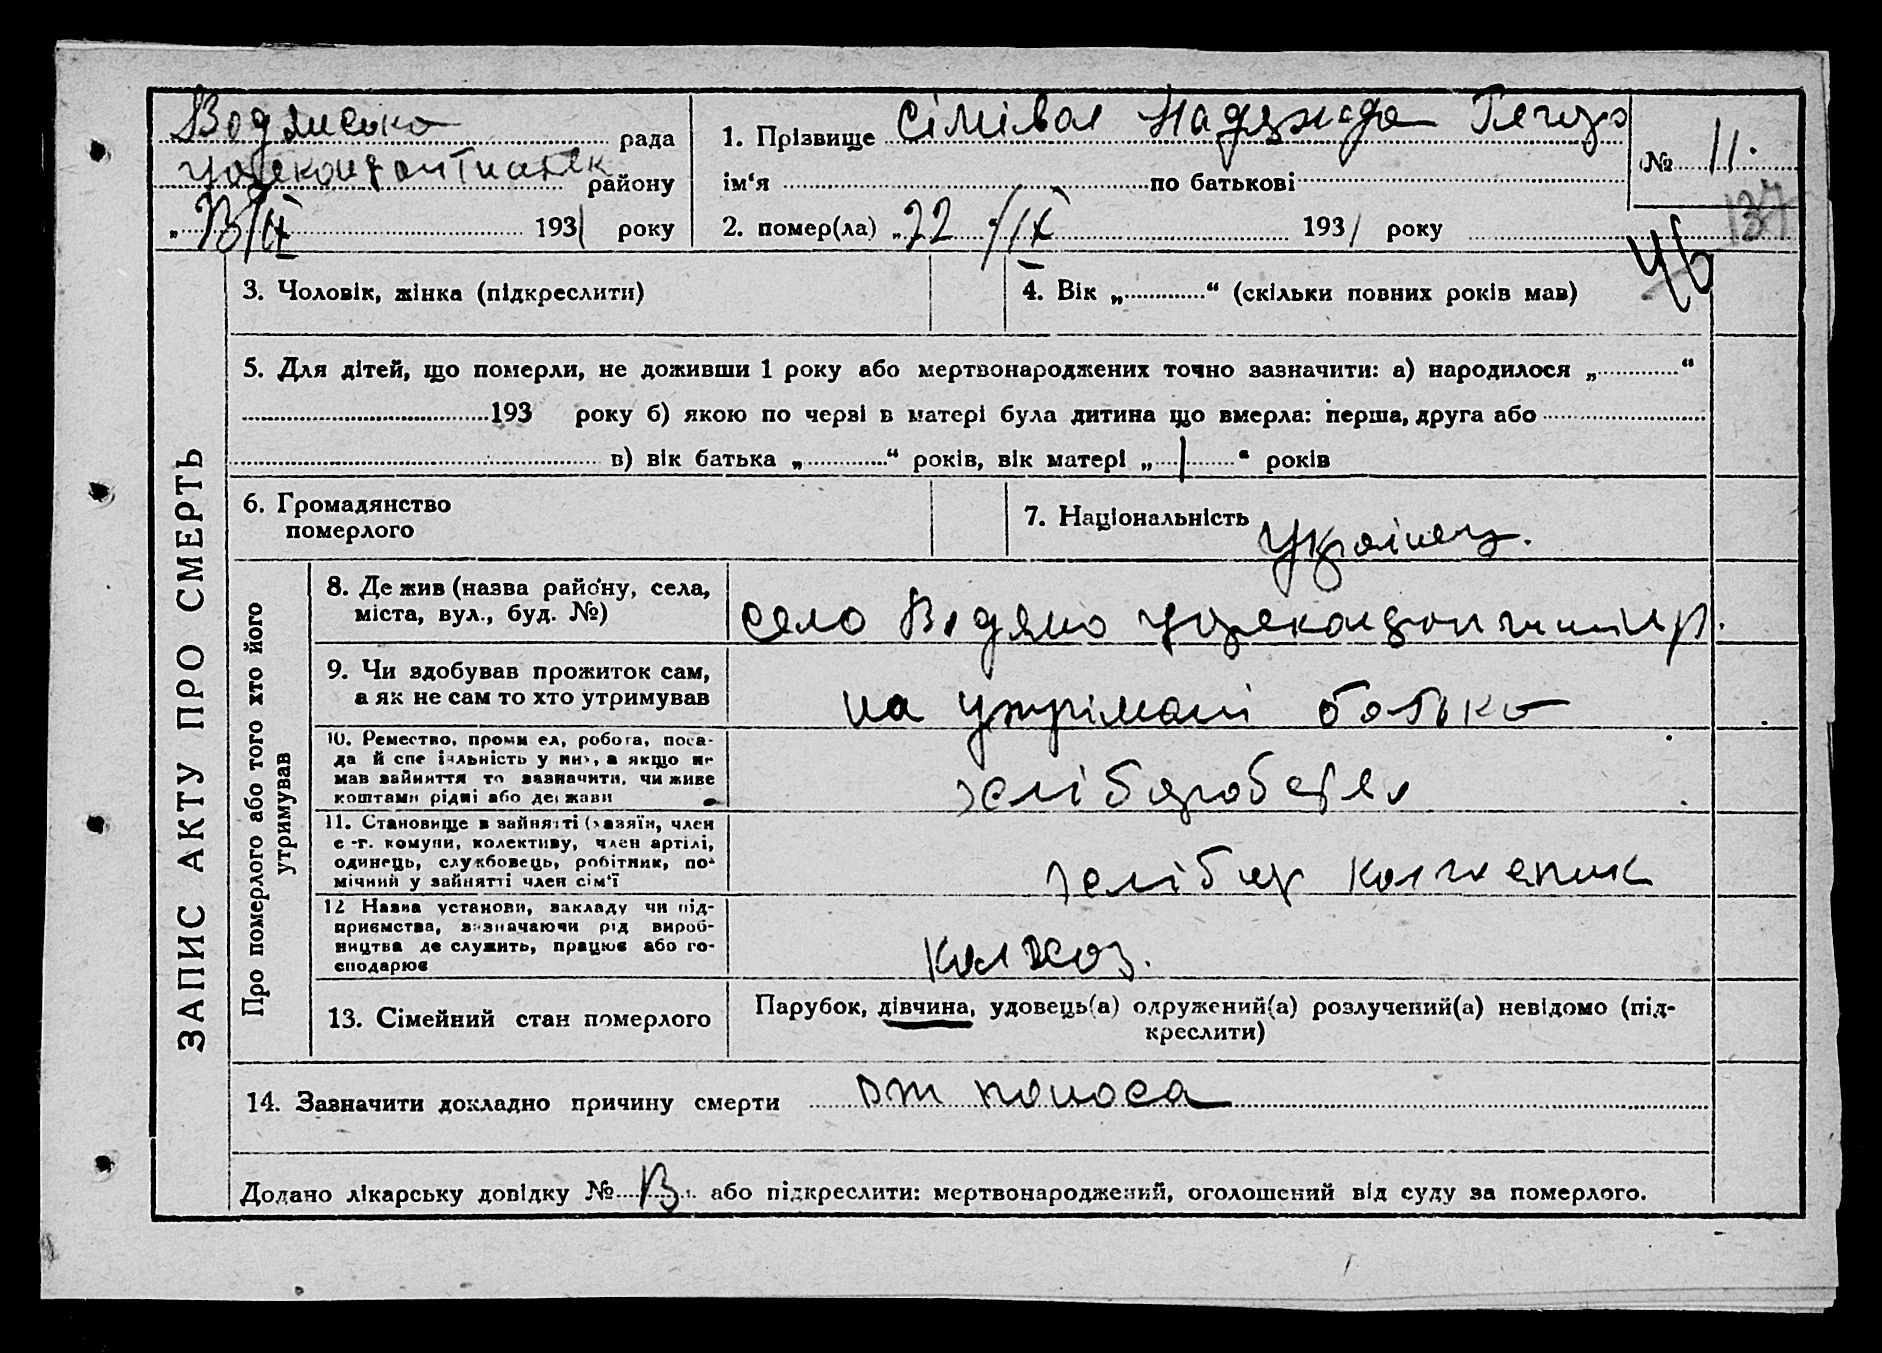 Водянська рада
району
„23/ІХ 1931 року
1. Прізвище Сімівол Надежда
ім‘я по батькові
№ 11.
137
2. помер(ла) „22/ІХ 1931 року
46
ЗАПИС АКТУ ПРО СМЕРТЬ
3. Чоловік, жінка (підкреслити)
4. Вік „ “ (скільки повних років мав)
5. Для дітей, що померли, не доживши 1 року або мертвонароджених точно зазначити: а) народилося „ “
193 року б) якою по черві в матері була дитина що вмерла: перша, друга або
в) вік батька „ “ років, вік матері „ “ років
6. Громадянство
померлого
7. Національність Українец.
Про померлого або того хто його
утримував
8. Де жив (назва району, села,
міста, вул., буд. №)
село Водяно
9. Чи здобував прожиток сам,
а як не сам то хто утримував
на утрімані батька
10. Ремество, промисел, робота, поса-
да й спеціяльність у них, а якщо не
мав зайняття то зазначити, чи живе
коштами рідні або держави
11. Становище в зайнятті (хазяїн, член
с-г. комуни, колективу, член артілі,
одинець, службовець, робітник, по-
мічний у зайнятті член сім‘ї
12 Назва установи, закладу чи під-
приємства, зазначаючи рід вироб-
ництва де служить, працює або го-
сподарює
колхоз.
13. Сімейний стан померлого
Парубок, дівчина, удовець(а) одружений(а) розлучений(а) невідомо (під-
креслити)
14. Зазначити докладно причину смерти от поноса
Додано лікарську довідку № або підкреслити: мертвонароджений, оголошений від суду за померлого.